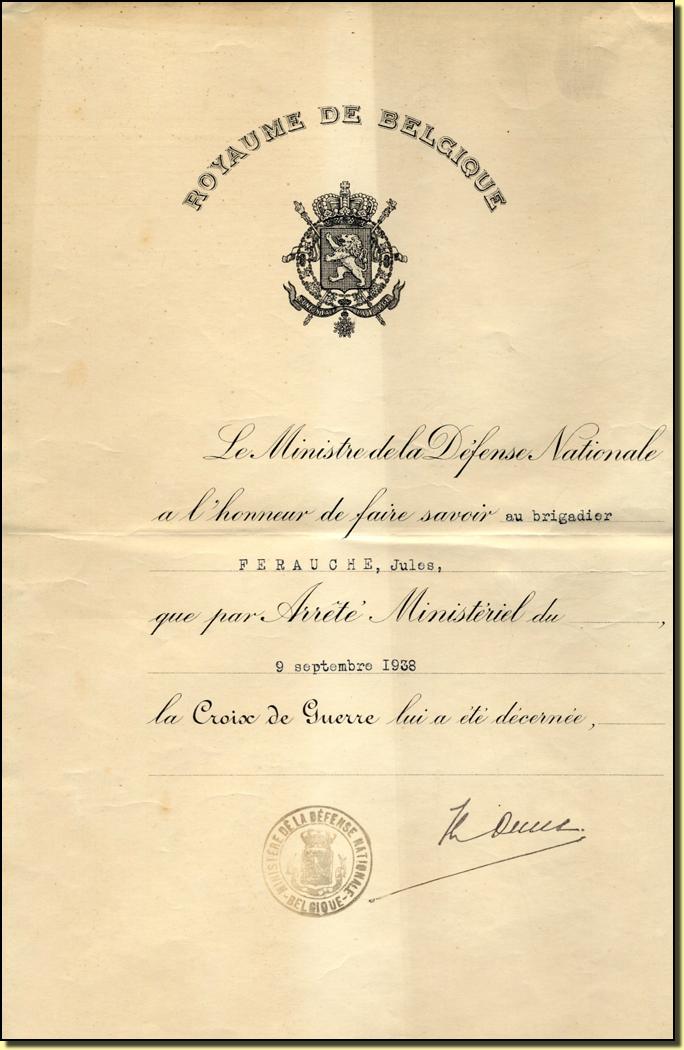 ROYAUME DE BELGIQUE
Le Ministre de la Défense Nationale
a l'honneur de faire savoir au brigadier
FERAUCHE, Jules,
que par Arrêté Ministériel du ,
9 septembre 1938
la Croix de Guerre lui a été décernée,
MINISTÈRE DE LA DÉFENSE NATIONALE
-BELGIQUE-